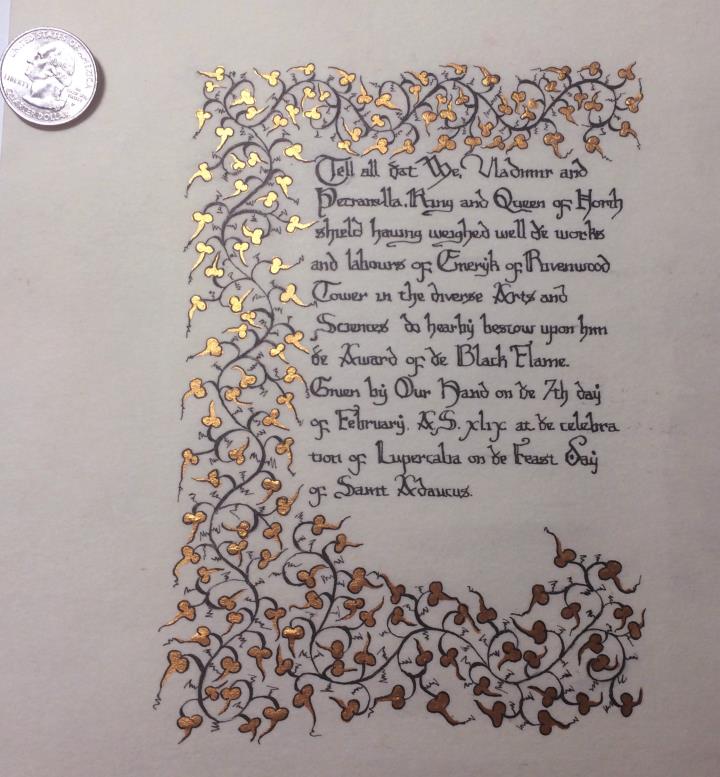 UNITED STATES OF AMERICA
LIBERTY
QUARTER DOLLAR
Tell all ðat We, Vladimir and
Petranella, King and Queen of North
shield having weighed well ðe works
and labours of Emerijk of Ravenwood
Tower in the diverse Arts and
Sciences do hearbij bestow upon him
ðe Award of ðe Black Flame.
Given bij Our Hand on ðe 7th daij
of Februarij, A.S. xlix at ðe celebra
tion of Lupercalia on ðe Feast Daij
of Saint Adaucus.